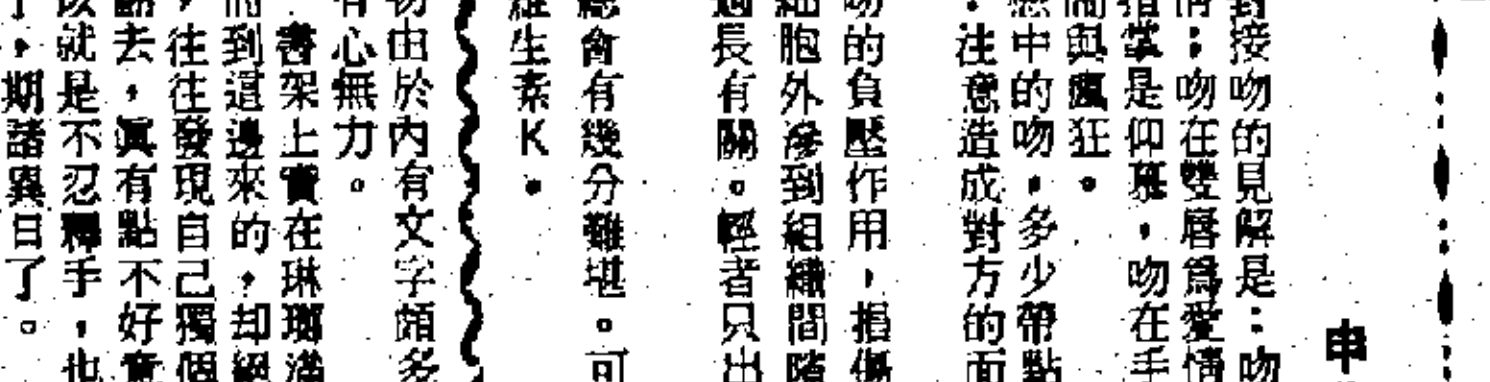 申
對接吻的見解是：吻
情；吻在雙唇爲愛情
指掌是仰慕，吻在手
間與瘋狂。
戀中的吻，多少帶點
：注意造成對方的面
吻的負壓作用，損傷
細胞外滲到組織間隙
過長有關。輕者只出
總會有幾分難堪。可
維生素K。
物由於內有文字頗多
有心無力。
書架上實在琳瑯滿
而到這邊來的，却絕
，往往發現自己獨個
翻去，眞有點不好意
該就是不忍釋手，也
了，期諸異日了。